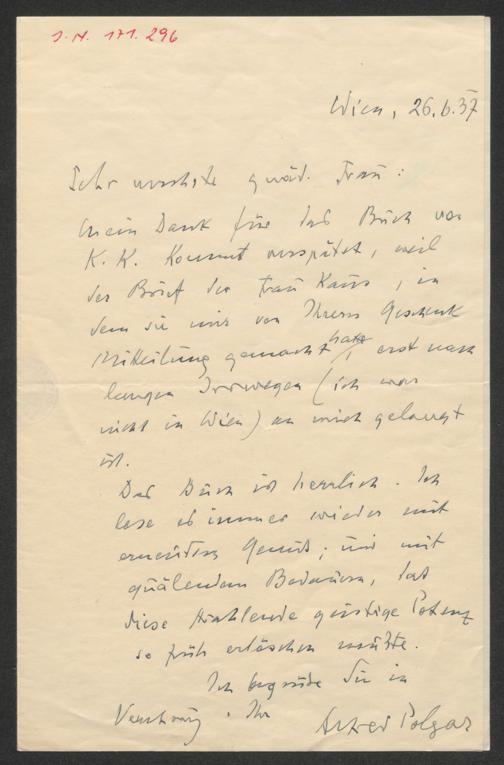 J.N. 171.296
Wien, 26.6.37
Sehr verehrte gnäd. Frau:
Mein Dank für das Buch von
K. K. kommt verspätet, weil
der Brief der Frau Kaus, in
dem sie mir von Ihrem Geschenk
Mitteilung gemacht hatte, erst nach
langen Irrwegen (ich war
nicht in Wien) an mich gelangt
ist.
Das Buch ist herrlich. Ich
lese es immer wieder mit
erneutem Genuß; und mit
quälendem Bedauern, daß
diese strahlende geistige Potenz
so früh erlöschen mußte.
Ich begrüße Sie in
Verehrung. Ihr
Alfred Polgar